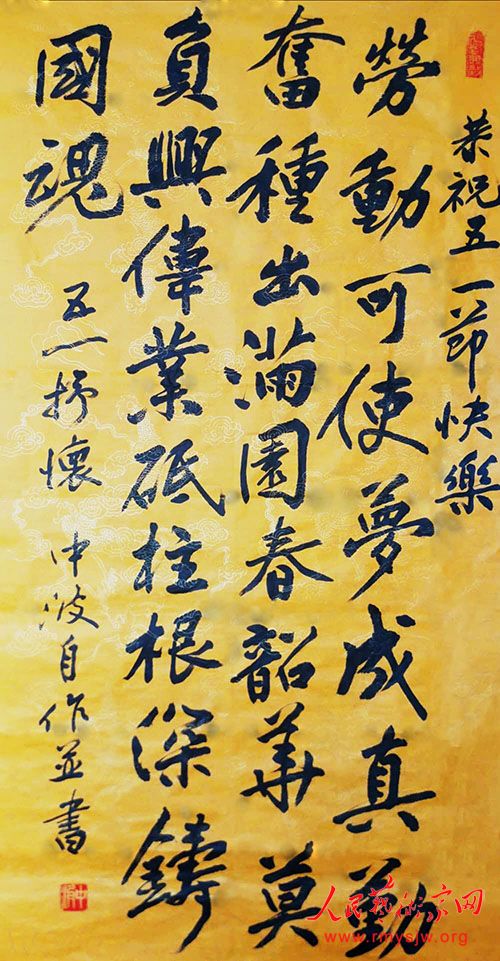 恭祝五一節快樂
勞動可使夢成真勤
奮種出滿園春韶華莫
負興偉業砥柱根深鑄
國魂
五一抒懷 中波自作並書
人民藝術家网
www.rmysjw.org